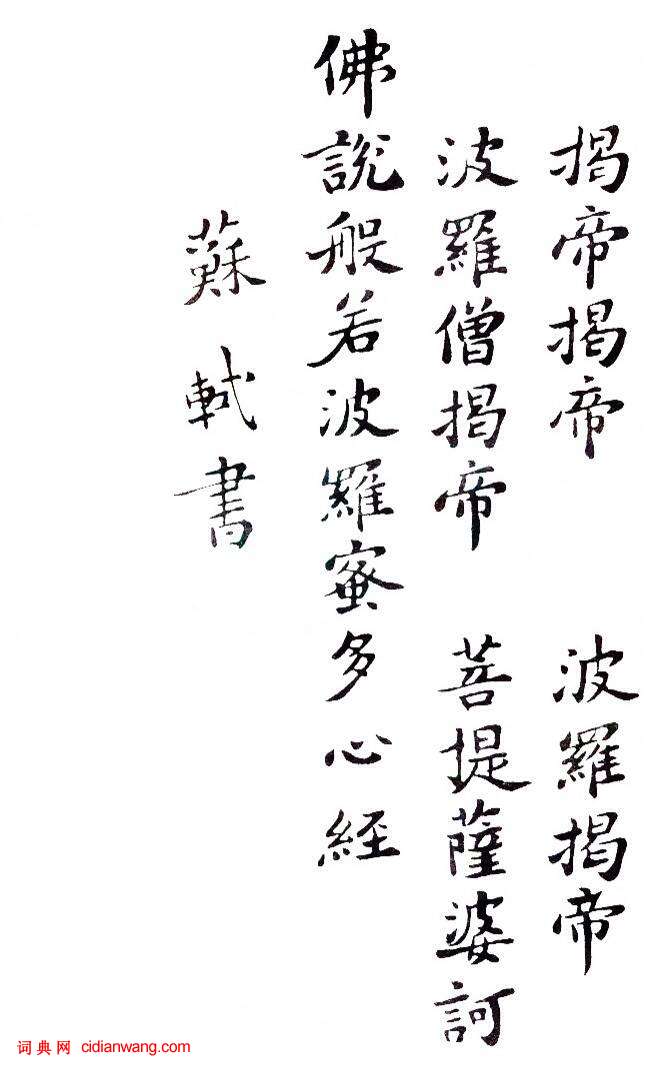 揭帝揭帝 波羅揭帝
波羅僧揭帝 菩提薩婆訶
佛說般若波羅蜜多心經
蘇軾書
词典网 cidianwang.com